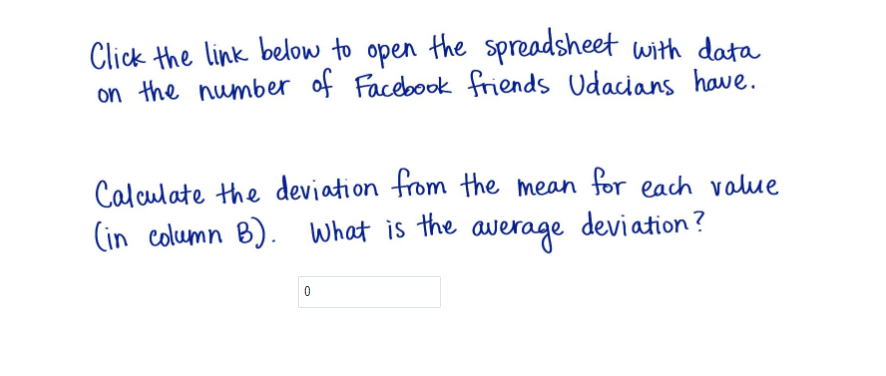 Click the link below to open the spreadsheet with data
on the number of Facebook friends Udacians have.
Calculate the deviation from the mean for each value
(in column B). What is the average deviation?
0